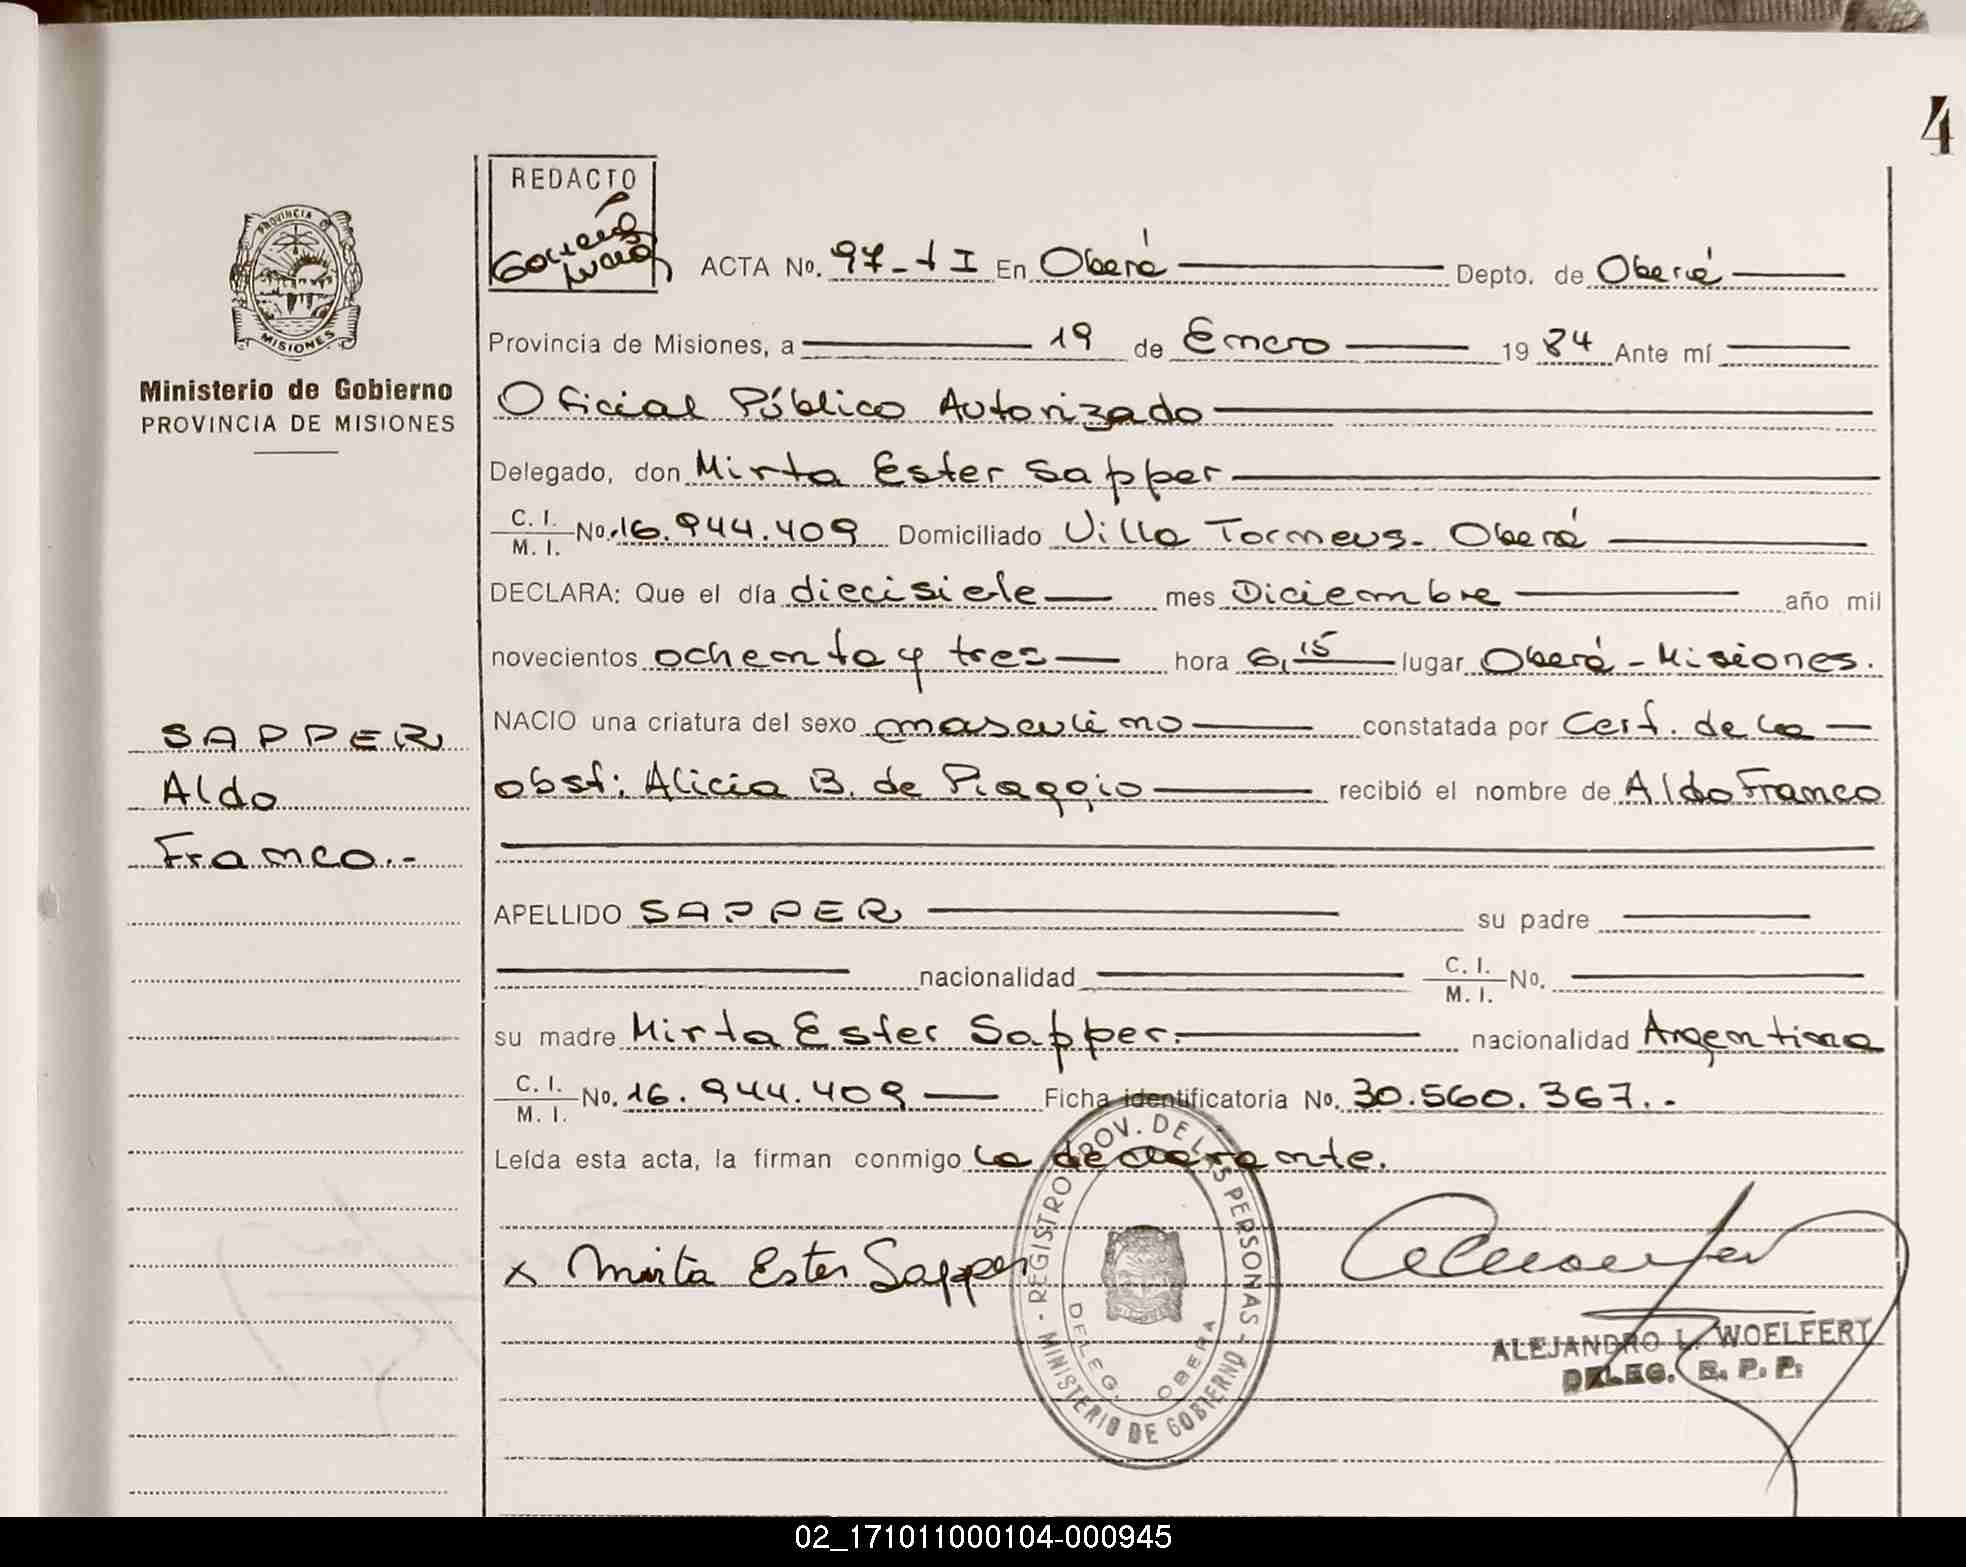 4
REDACTO
PROVINCIA
MISIONES
Ministerio de Gobierno
PROVINCIA DE MISIONES
ACTA No. 97-tI En Oberá Depto. de Oberá
Provincia de Misiones, a 19 de Enero 1984 Ante mí
Oficial Público Autorizado
Delegado, don Mirta Ester Sapper
C. I. / M. I. No. 16.944.409 Domiciliado Villa Torneus - Oberá
DECLARA: Que el día diecisiete mes Diciembre año mil
novecientos ochenta y tres hora 6,15 lugar Oberá - Misiones.
SAPPER
Aldo
Franco.-
NACIO una criatura del sexo masculino constatada por Cert. de la
obst: Alicia B. de Piaggio recibió el nombre de Aldo Franco
APELLIDO SAPPER su padre
nacionalidad C. I. / M. I. No.
su madre Mirta Ester Sapper. nacionalidad Argentina
C. I. / M. I. No. 16.944.409 Ficha identificatoria No. 30.560.367.-
Leída esta acta, la firman conmigo la declarante.
x Mirta Ester Sapper
REGISTRO PROV. DE LAS PERSONAS
MINISTERIO DE GOBIERNO
DELEG. OBERA
ALEJANDRO L. WOELFERT
DELEG. R. P. P.
02_171011000104-000945